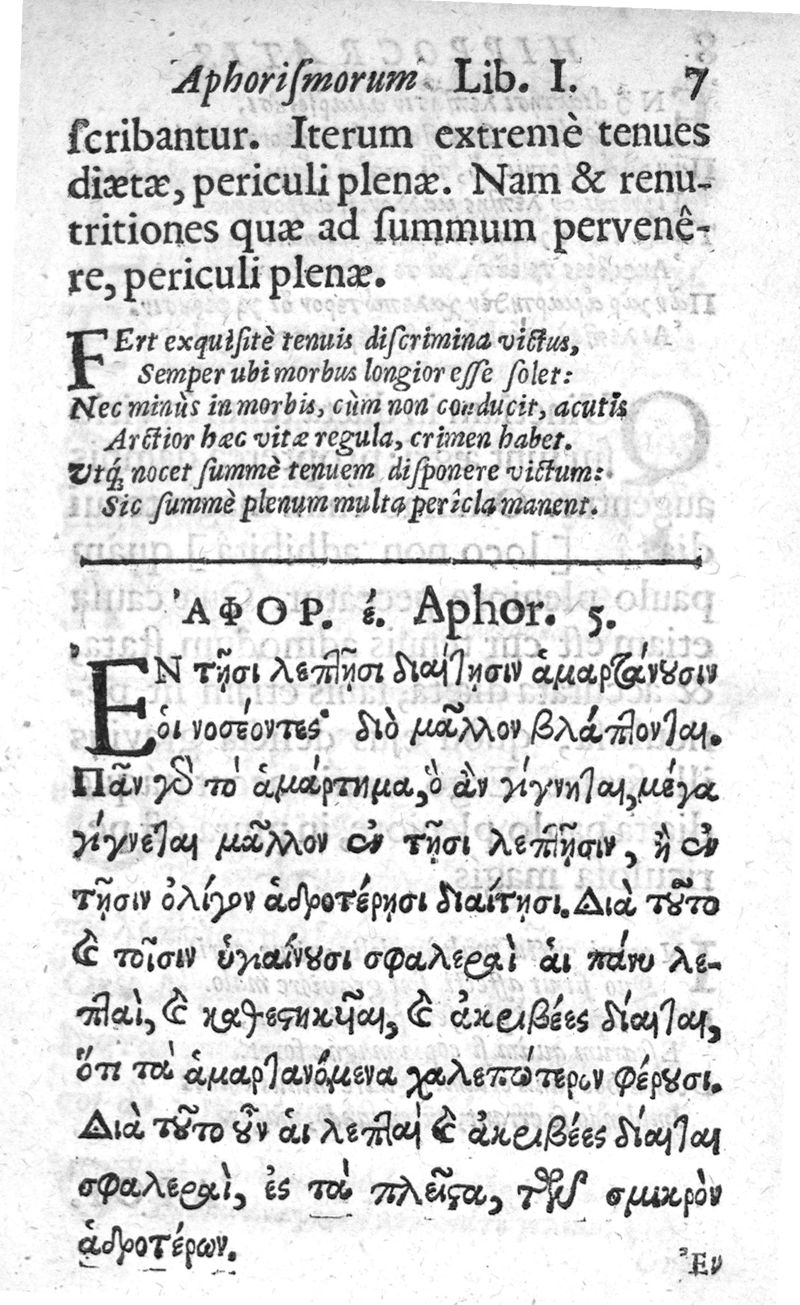 Aphoriſmorum Lib. I. 7
ſcribantur. Iterum extremè tenues
diætæ, periculi plenæ. Nam & renu-
tritiones quæ ad ſummum pervenê-
re, periculi plenæ.
FErt exquiſitè tenuis diſcrimina victus,
Semper ubi morbus longior eſſe ſolet:
Nec minùs in morbis, cùm non conducit, acutis
Arctior hæc vitæ regula, crimen habet.
Utq́; nocet ſummè tenuem diſponere victum:
Sic ſummè plenum multa perîcla manent.
ἈΦΟΡ. έ. Aphor. 5.
ἘΝ τῇσι λεπτῇσι διαίτῃσιν ἁμαρτάνουσιν
οἱ νοσέοντες· διὸ μᾶλλον βλάπτονται.
Πᾶν γὸ τὸ ἁμάρτημα, ὃ ἂν γίγνηται, μέγα
γίγνεται μᾶλλον ἐν τῇσι λεπτῇσιν, ἢ ἐν
τῇσιν ὀλίγον ἁδροτέρῃσι διαίτῃσι. Διὰ τοῦτο
ϗ τοῖσιν ὑγιαίνουσι σφαλεραὶ αἱ πάνυ λε-
πταὶ, ϗ καθεστηκυῖαι, ϗ ἀκριβέες δίαιται,
ὅτι τὰ ἁμαρτανόμενα χαλεπώτερον φέρουσι.
Διὰ τοῦτο οὖν αἱ λεπταὶ ϗ ἀκριβέες δίαιται
σφαλεραὶ, ἐς τὰ πλεῖστα, τῶν σμικρὸν
ἁδροτέρων.
Ἐν